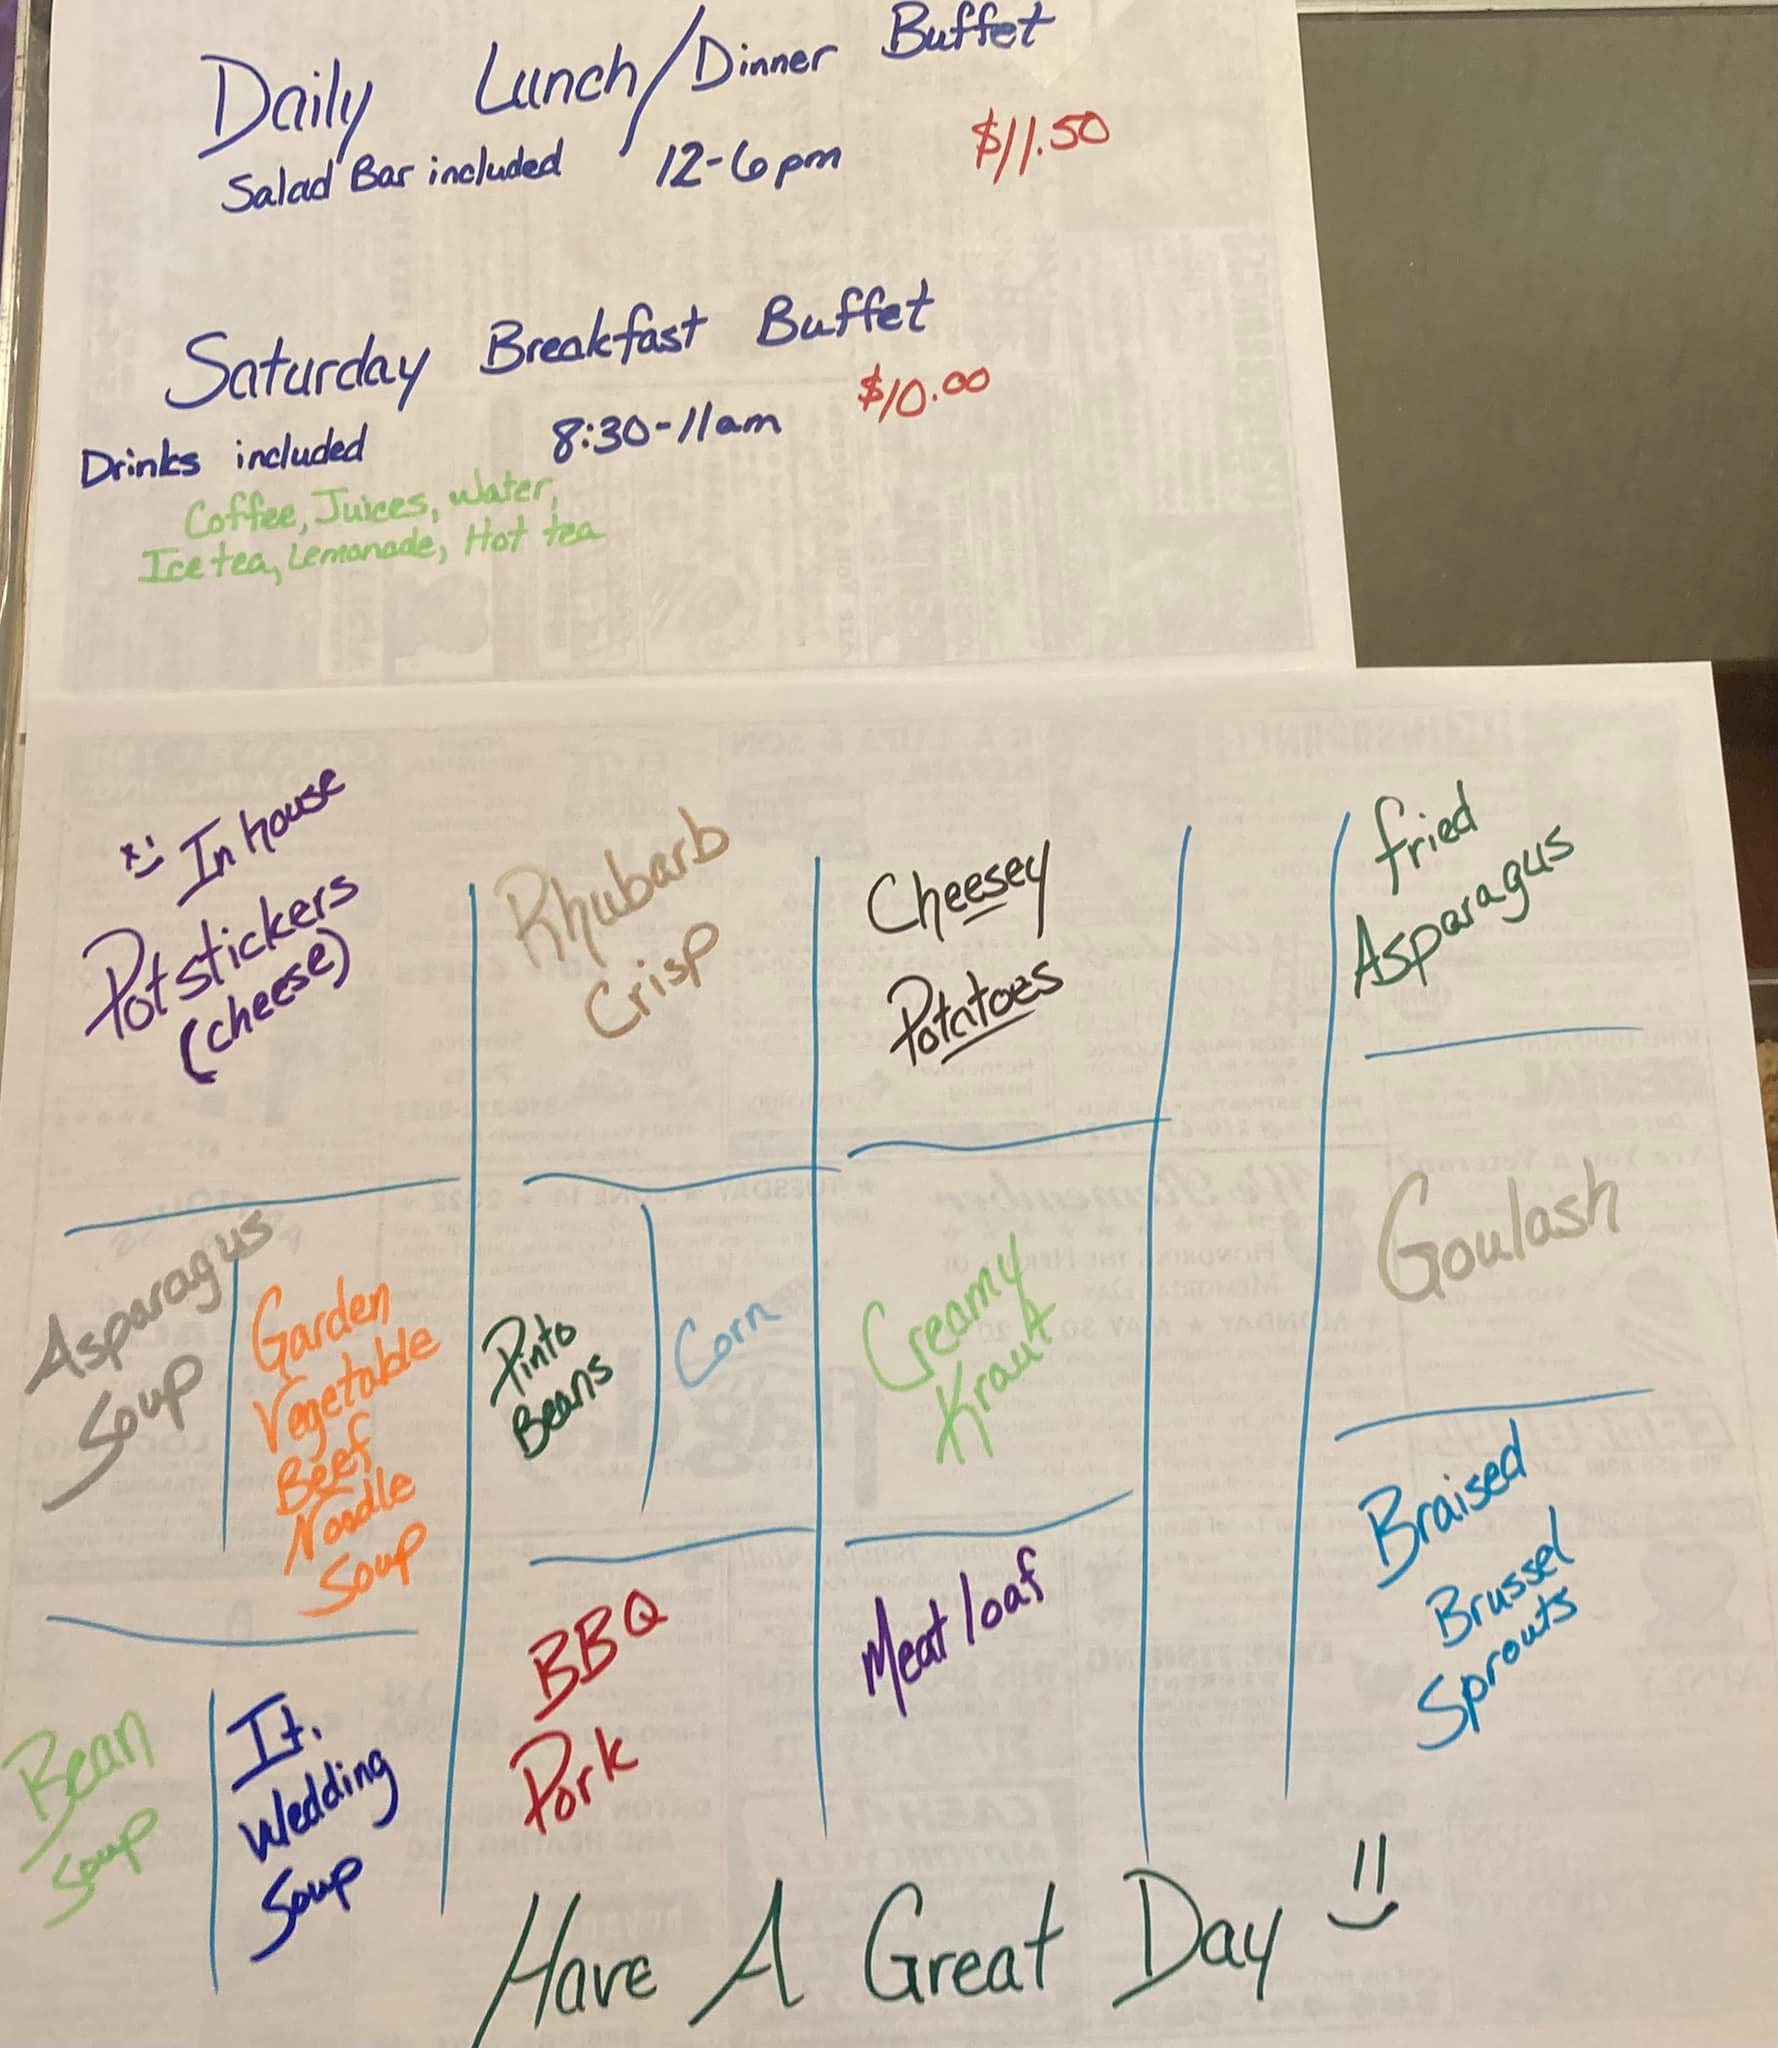 Daily Lunch/Dinner Buffet
Salad Bar included 12-6pm $11.50
Saturday Breakfast Buffet
Drinks included 8:30-11am $10.00
Coffee, Juices, water,
Ice tea, Lemonade, Hot tea
In house
Potstickers
(cheese)
Rhubarb
Crisp
Cheesey
Potatoes
fried
Asparagus
Asparagus
Soup
Garden
Vegetable
Beef
Noodle
Soup
Pinto
Beans
Corn
Creamy
Kraut
Goulash
Bean
Soup
It.
Wedding
Soup
BBQ
Pork
Meat loaf
Braised
Brussel
Sprouts
Have A Great Day